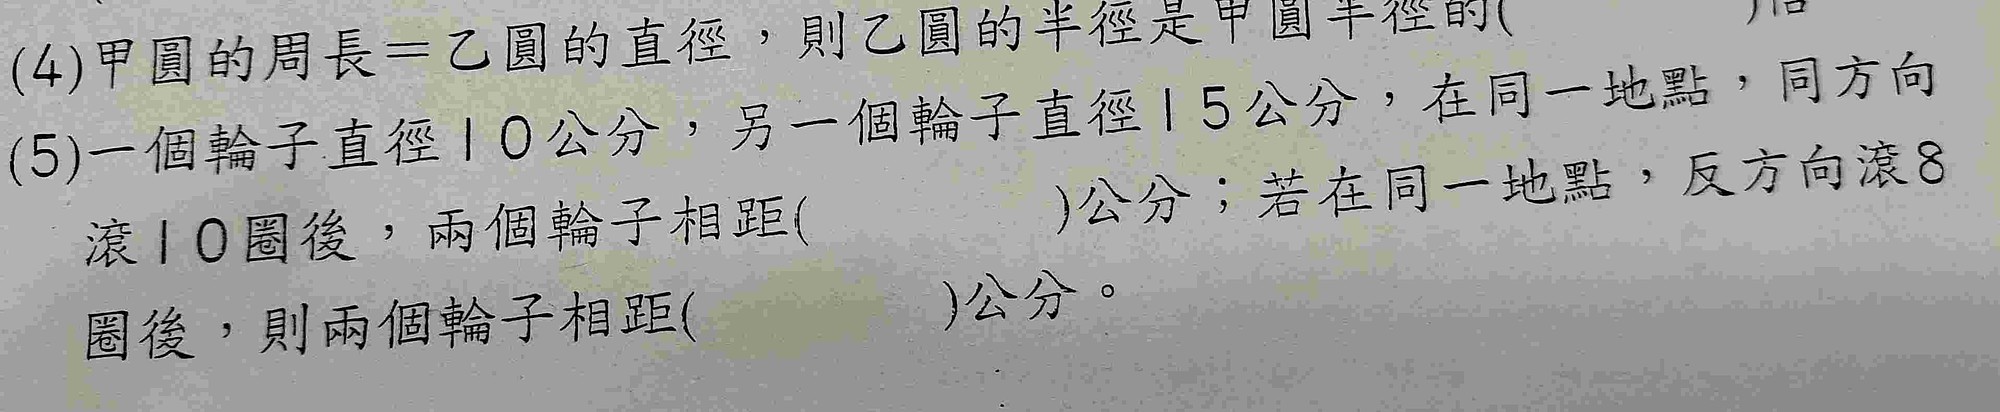 (4)甲圓的周長＝乙圓的直徑，則乙圓的半徑是甲圓半徑的(　　　)倍
(5)一個輪子直徑10公分，另一個輪子直徑15公分，在同一地點，同方向
滾10圈後，兩個輪子相距(　　　)公分；若在同一地點，反方向滾8
圈後，則兩個輪子相距(　　　)公分。